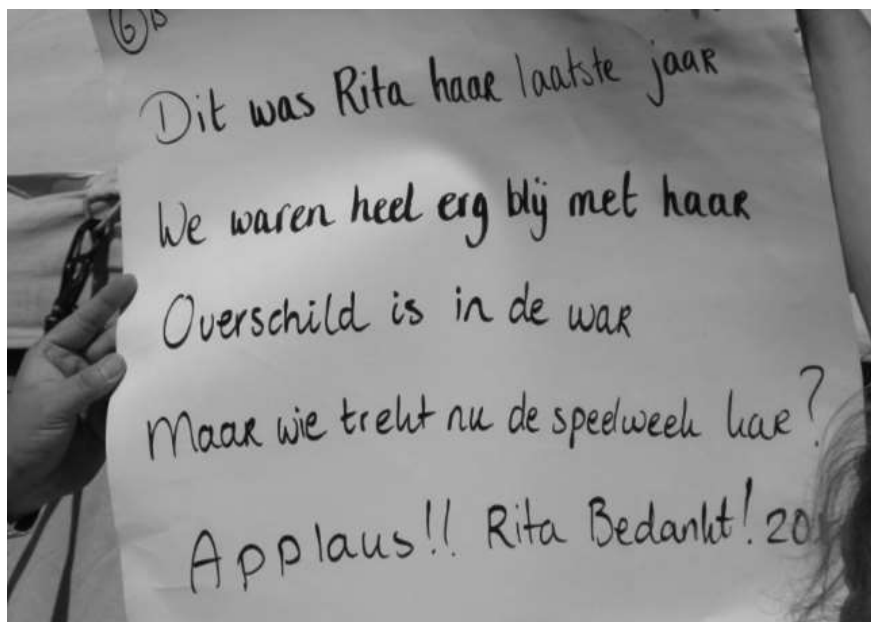 6 B
Dit was Rita haar laatste jaar
We waren heel erg blij met haar
Overschild is in de war
Maar wie trekt nu de speelweek kar?
Applaus!! Rita Bedankt!